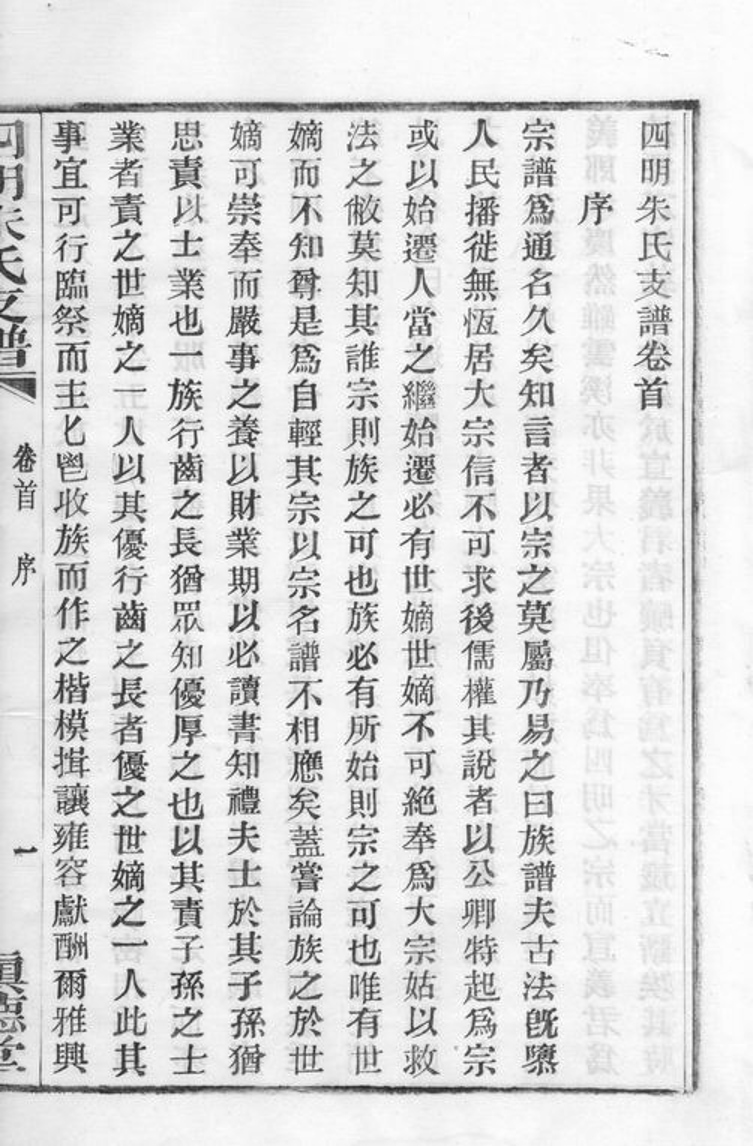 四明朱氏支譜卷首
序
宗譜爲通名久矣知言者以宗之莫屬乃易之曰族譜夫古法旣隳
人民播徙無恆居大宗信不可求後儒權其說者以公卿特起爲宗
或以始遷人當之繼始遷必有世嫡世嫡不可絶奉爲大宗姑以救
法之敝莫知其誰宗則族之可也族必有所始則宗之可也唯有世
嫡而不知尊是爲自輕其宗以宗名譜不相應矣蓋嘗論族之於世
嫡可崇奉而嚴事之養以財業期以必讀書知禮夫士於其子孫猶
思責以士業也一族行齒之長猶眾知優厚之也以其責子孫之士
業者責之世嫡之一人以其優行齒之長者優之世嫡之一人此其
事宜可行臨祭而主匕鬯收族而作之楷模揖讓雍容獻酬爾雅興
四明朱氏支譜
卷首 序
一